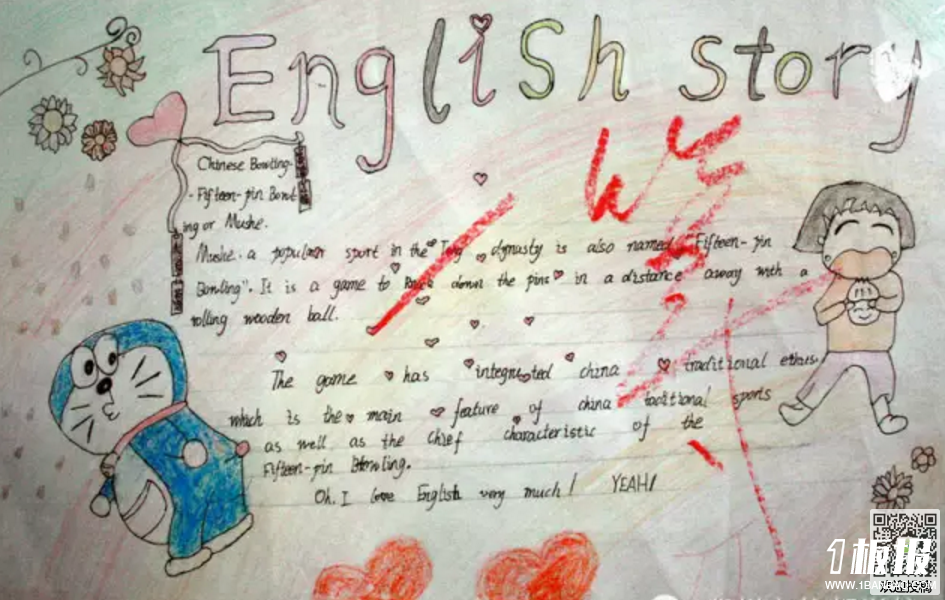 English story
Chinese Bowling-
-Fifteen-pin Bowl
ing or Mushe.
Mushe. a popular sport in the Tang dynasty is also named "Fifteen-pin
Bowling". It is a game to down the pins in a distance away with a
rolling wooden ball.
The game has integrated china traditional ethics.
which is the main feature of china taditional sports
as well as the chief characteristic of the
Fifteen-pin Blowling.
Oh. I love English very much! YEAH!
1板报
WWW.1BANBAO.COM
欢迎投稿